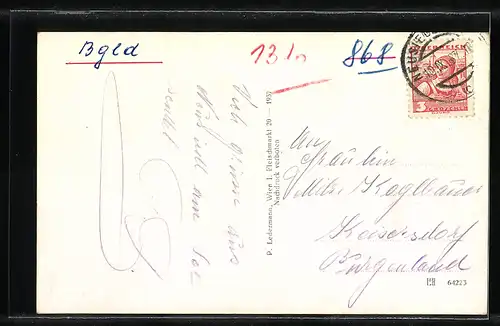 Bgld
13 ln
868
NEUSIEDL
ÖSTERREICH
3
GROSCHEN
Viele Grüsse aus
Neusiedl am See
sendet
P. Ledermann, Wien I. Fleischmarkt 20 — 1937
Nachdruck verboten
An
Fräulein
Mitzi Koglbauer
Kaisersdorf
Burgenland
64223